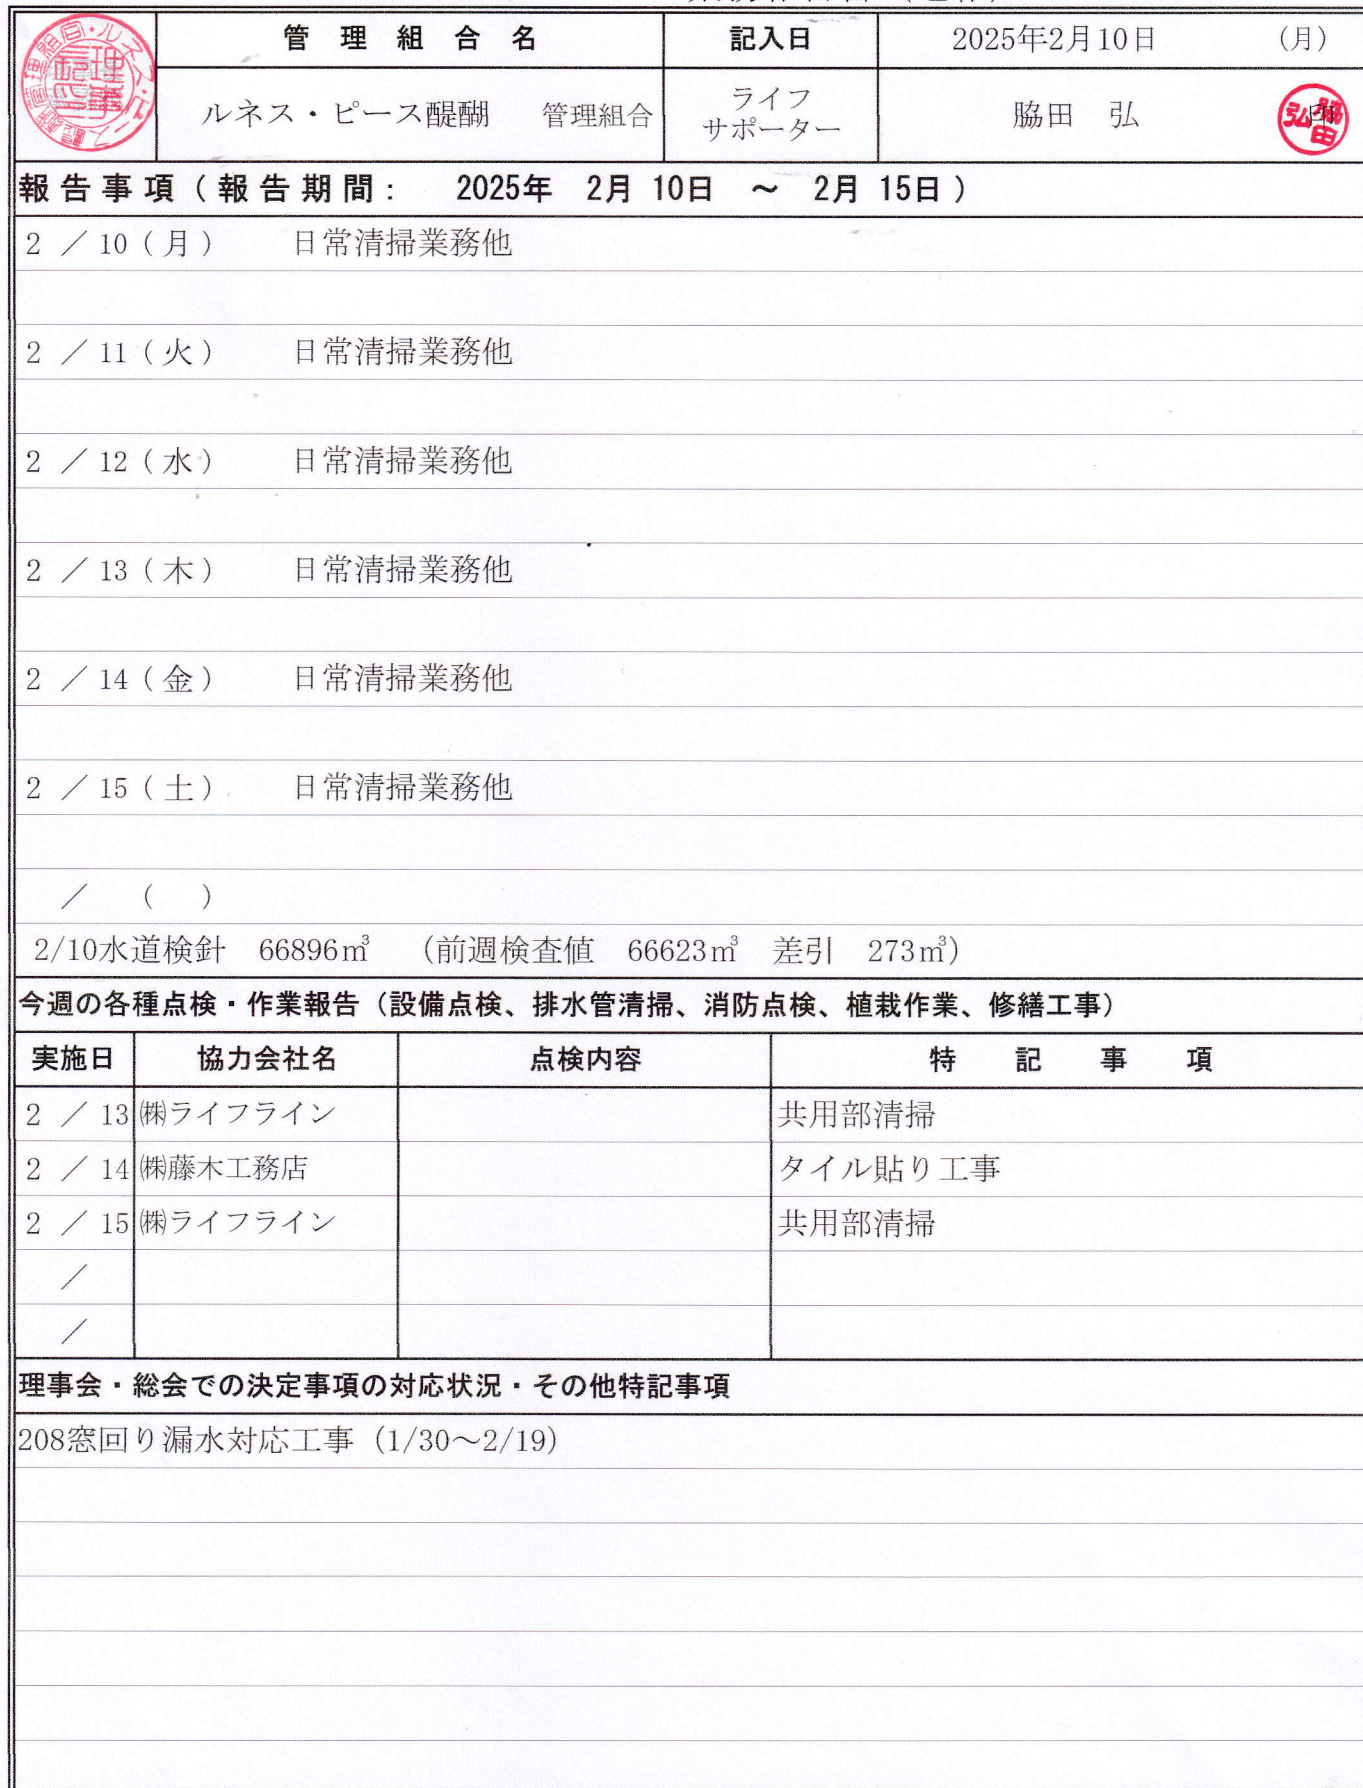 管理組合名 記入日 2025年2月10日 (月)
ルネス・ピース醍醐 管理組合 ライフ
サポーター 脇田 弘 印
報告事項(報告期間: 2025年 2月 10日 ~ 2月 15日)
2 / 10(月) 日常清掃業務他
2 / 11(火) 日常清掃業務他
2 / 12(水) 日常清掃業務他
2 / 13(木) 日常清掃業務他
2 / 14(金) 日常清掃業務他
2 / 15(土) 日常清掃業務他
/ ( )
2/10水道検針 66896㎥ (前週検査値 66623㎥ 差引 273㎥)
今週の各種点検・作業報告(設備点検、排水管清掃、消防点検、植栽作業、修繕工事)
実施日 協力会社名 点検内容 特記事項
2 / 13 ㈱ライフライン 共用部清掃
2 / 14 ㈱藤木工務店 タイル貼り工事
2 / 15 ㈱ライフライン 共用部清掃
/
/
理事会・総会での決定事項の対応状況・その他特記事項
208窓回り漏水対応工事 (1/30~2/19)